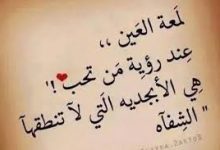 لمعة العين ،،
عِند رؤية مَن تحب !"
هِي الأبجديه الَتي لآ تنطقهآ
" الشِفآه